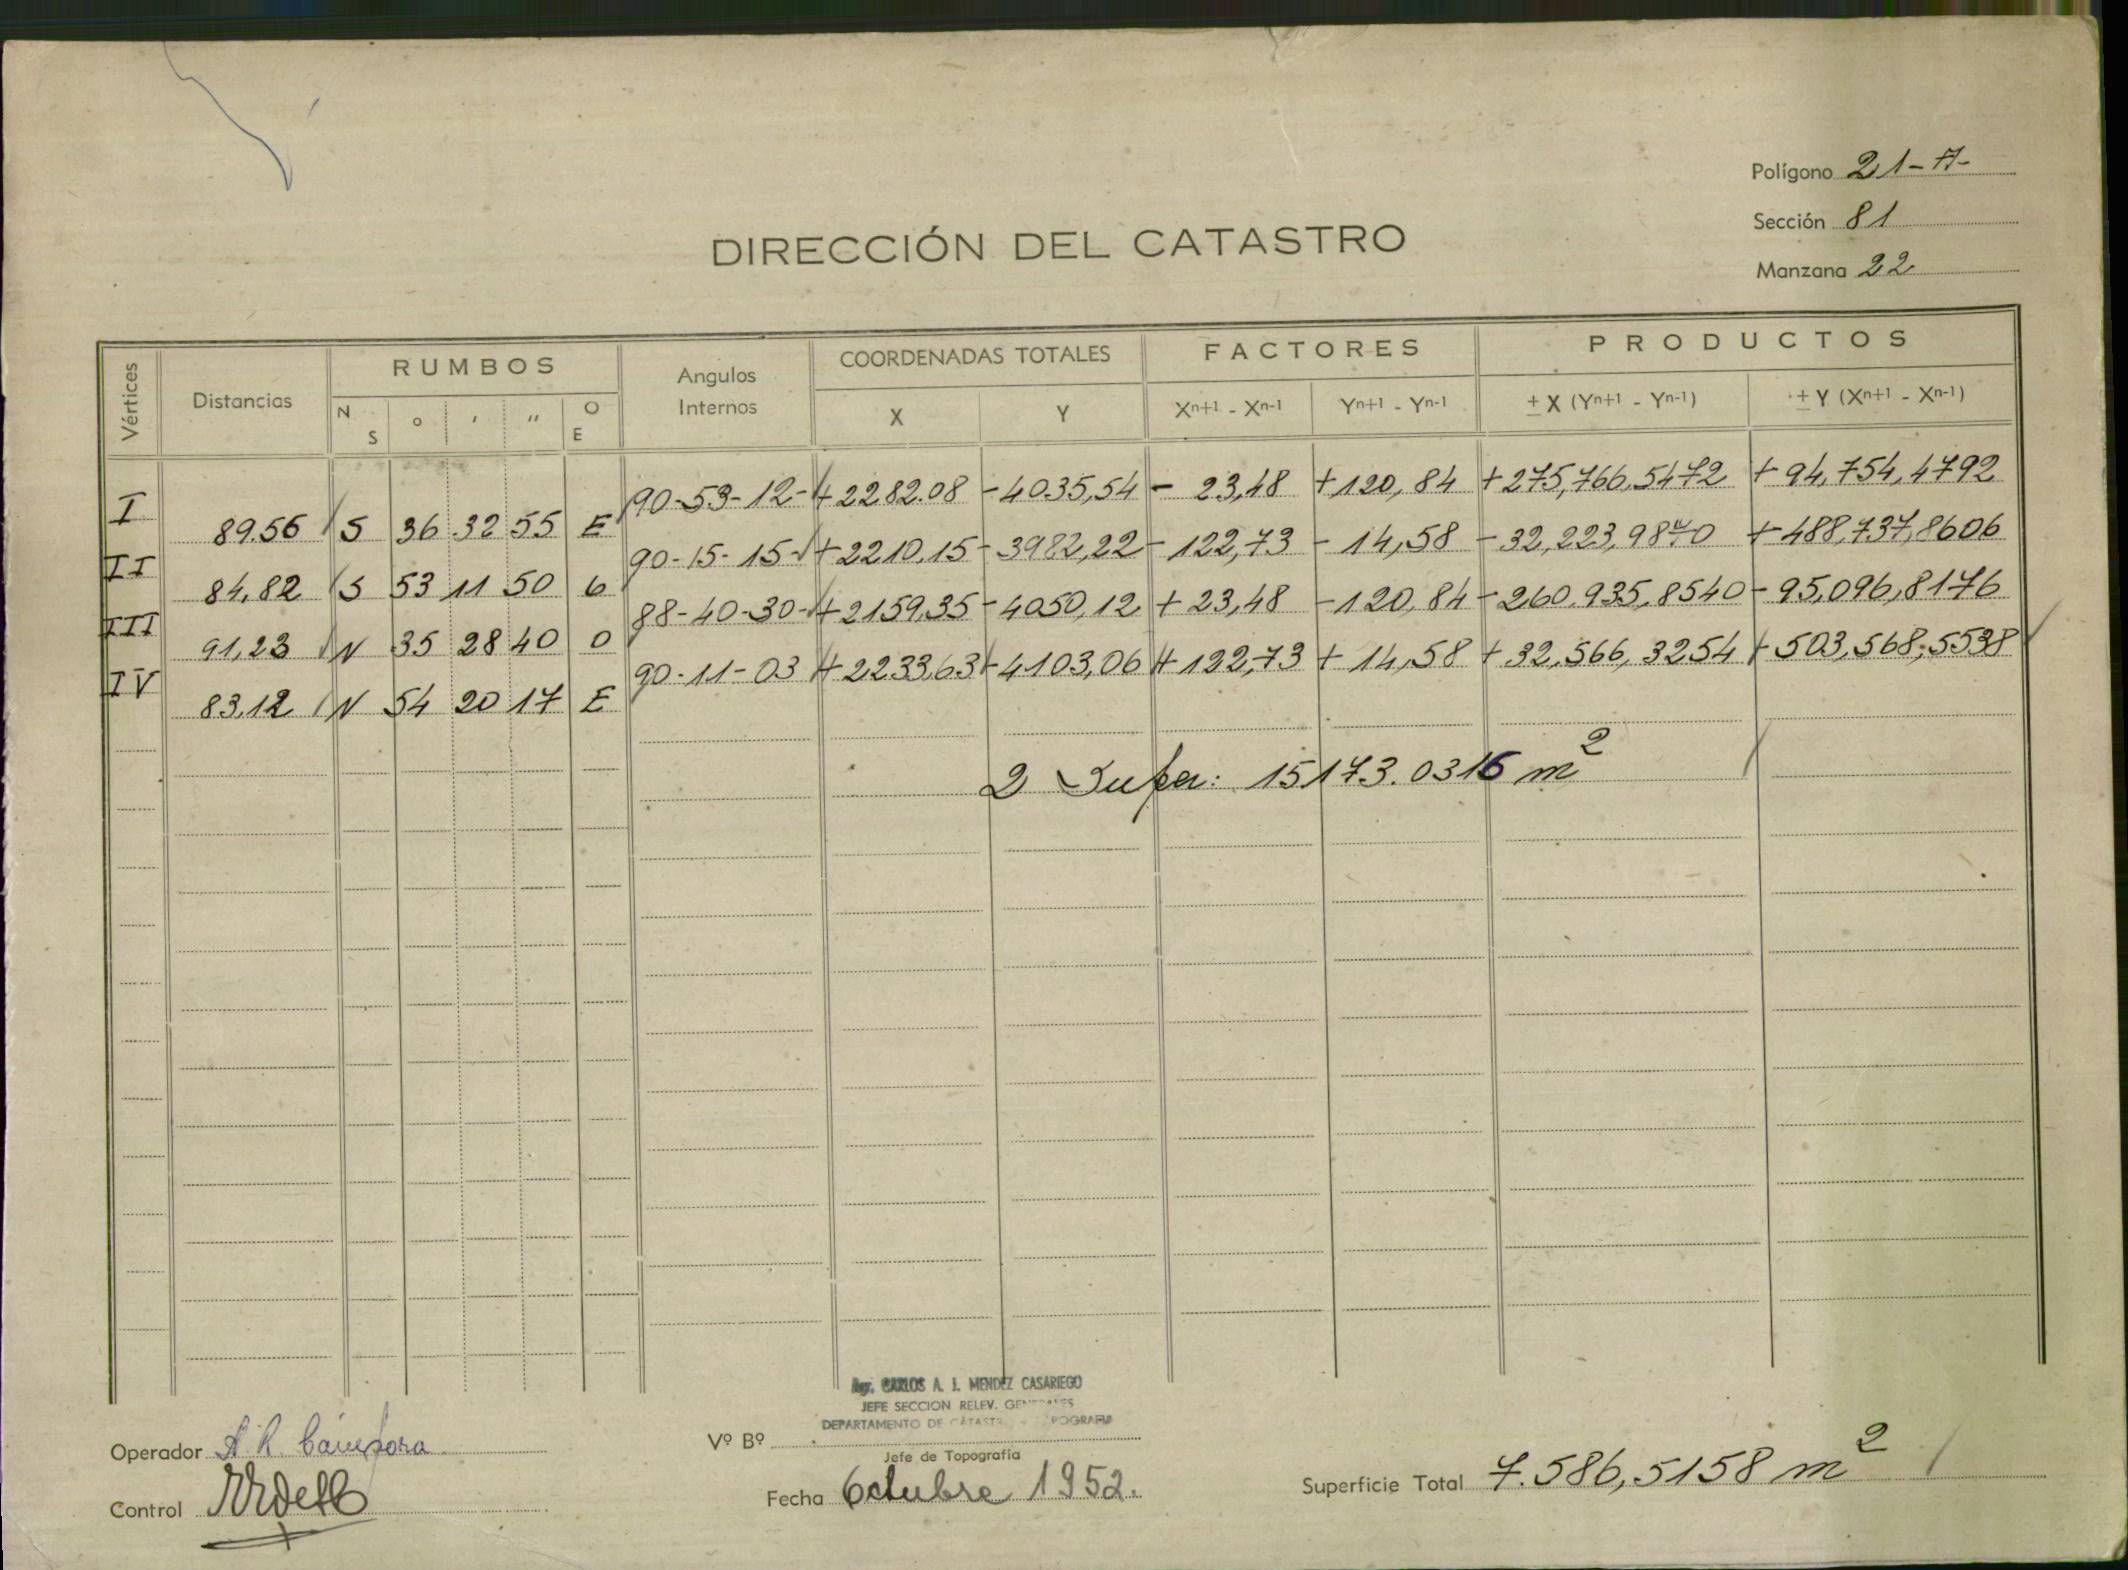 Polígono 21-A-
Sección 81
Manzana 22
DIRECCIÓN DEL CATASTRO
Vértices Distancias RUMBOS Angulos Internos COORDENADAS TOTALES FACTORES PRODUCTOS
N S ° ′ ″ O E X Y Xⁿ⁺¹ - Xⁿ⁻¹ Yⁿ⁺¹ - Yⁿ⁻¹ ± X (Yⁿ⁺¹ - Yⁿ⁻¹) ± Y (Xⁿ⁺¹ - Xⁿ⁻¹)
I 90-53-12- +2282.08 -4035,54 - 23,48 +120,84 +275,766,5472 + 94,754,4792
89.56 S 36 32 55 E
II 90-15-15- +2210.15 -3982,22 -122,73 -14,58 -32,223,9870 +488,737,8606
84,82 S 53 11 50 O
III 88-40-30- +2159,35 -4050,12 +23,48 -120,84 -260.935,8540 -95,096,8176
91,23 N 35 28 40 O
IV 90-11-03 +2233,63 -4103,06 +122,73 +14,58 +32,566,3254 +503,568,5538
83,12 N 54 20 17 E
2 Supa: 15173.0316 m²
Agr. CARLOS A. J. MENDEZ CASARIEGO
JEFE SECCION RELEV. GENERALES
DEPARTAMENTO DE CATASTR
Operador A. R. Cámpora
Vº Bº
Jefe de Topografía
Control
Fecha Octubre 1952.
Superficie Total 7.586,5158 m²